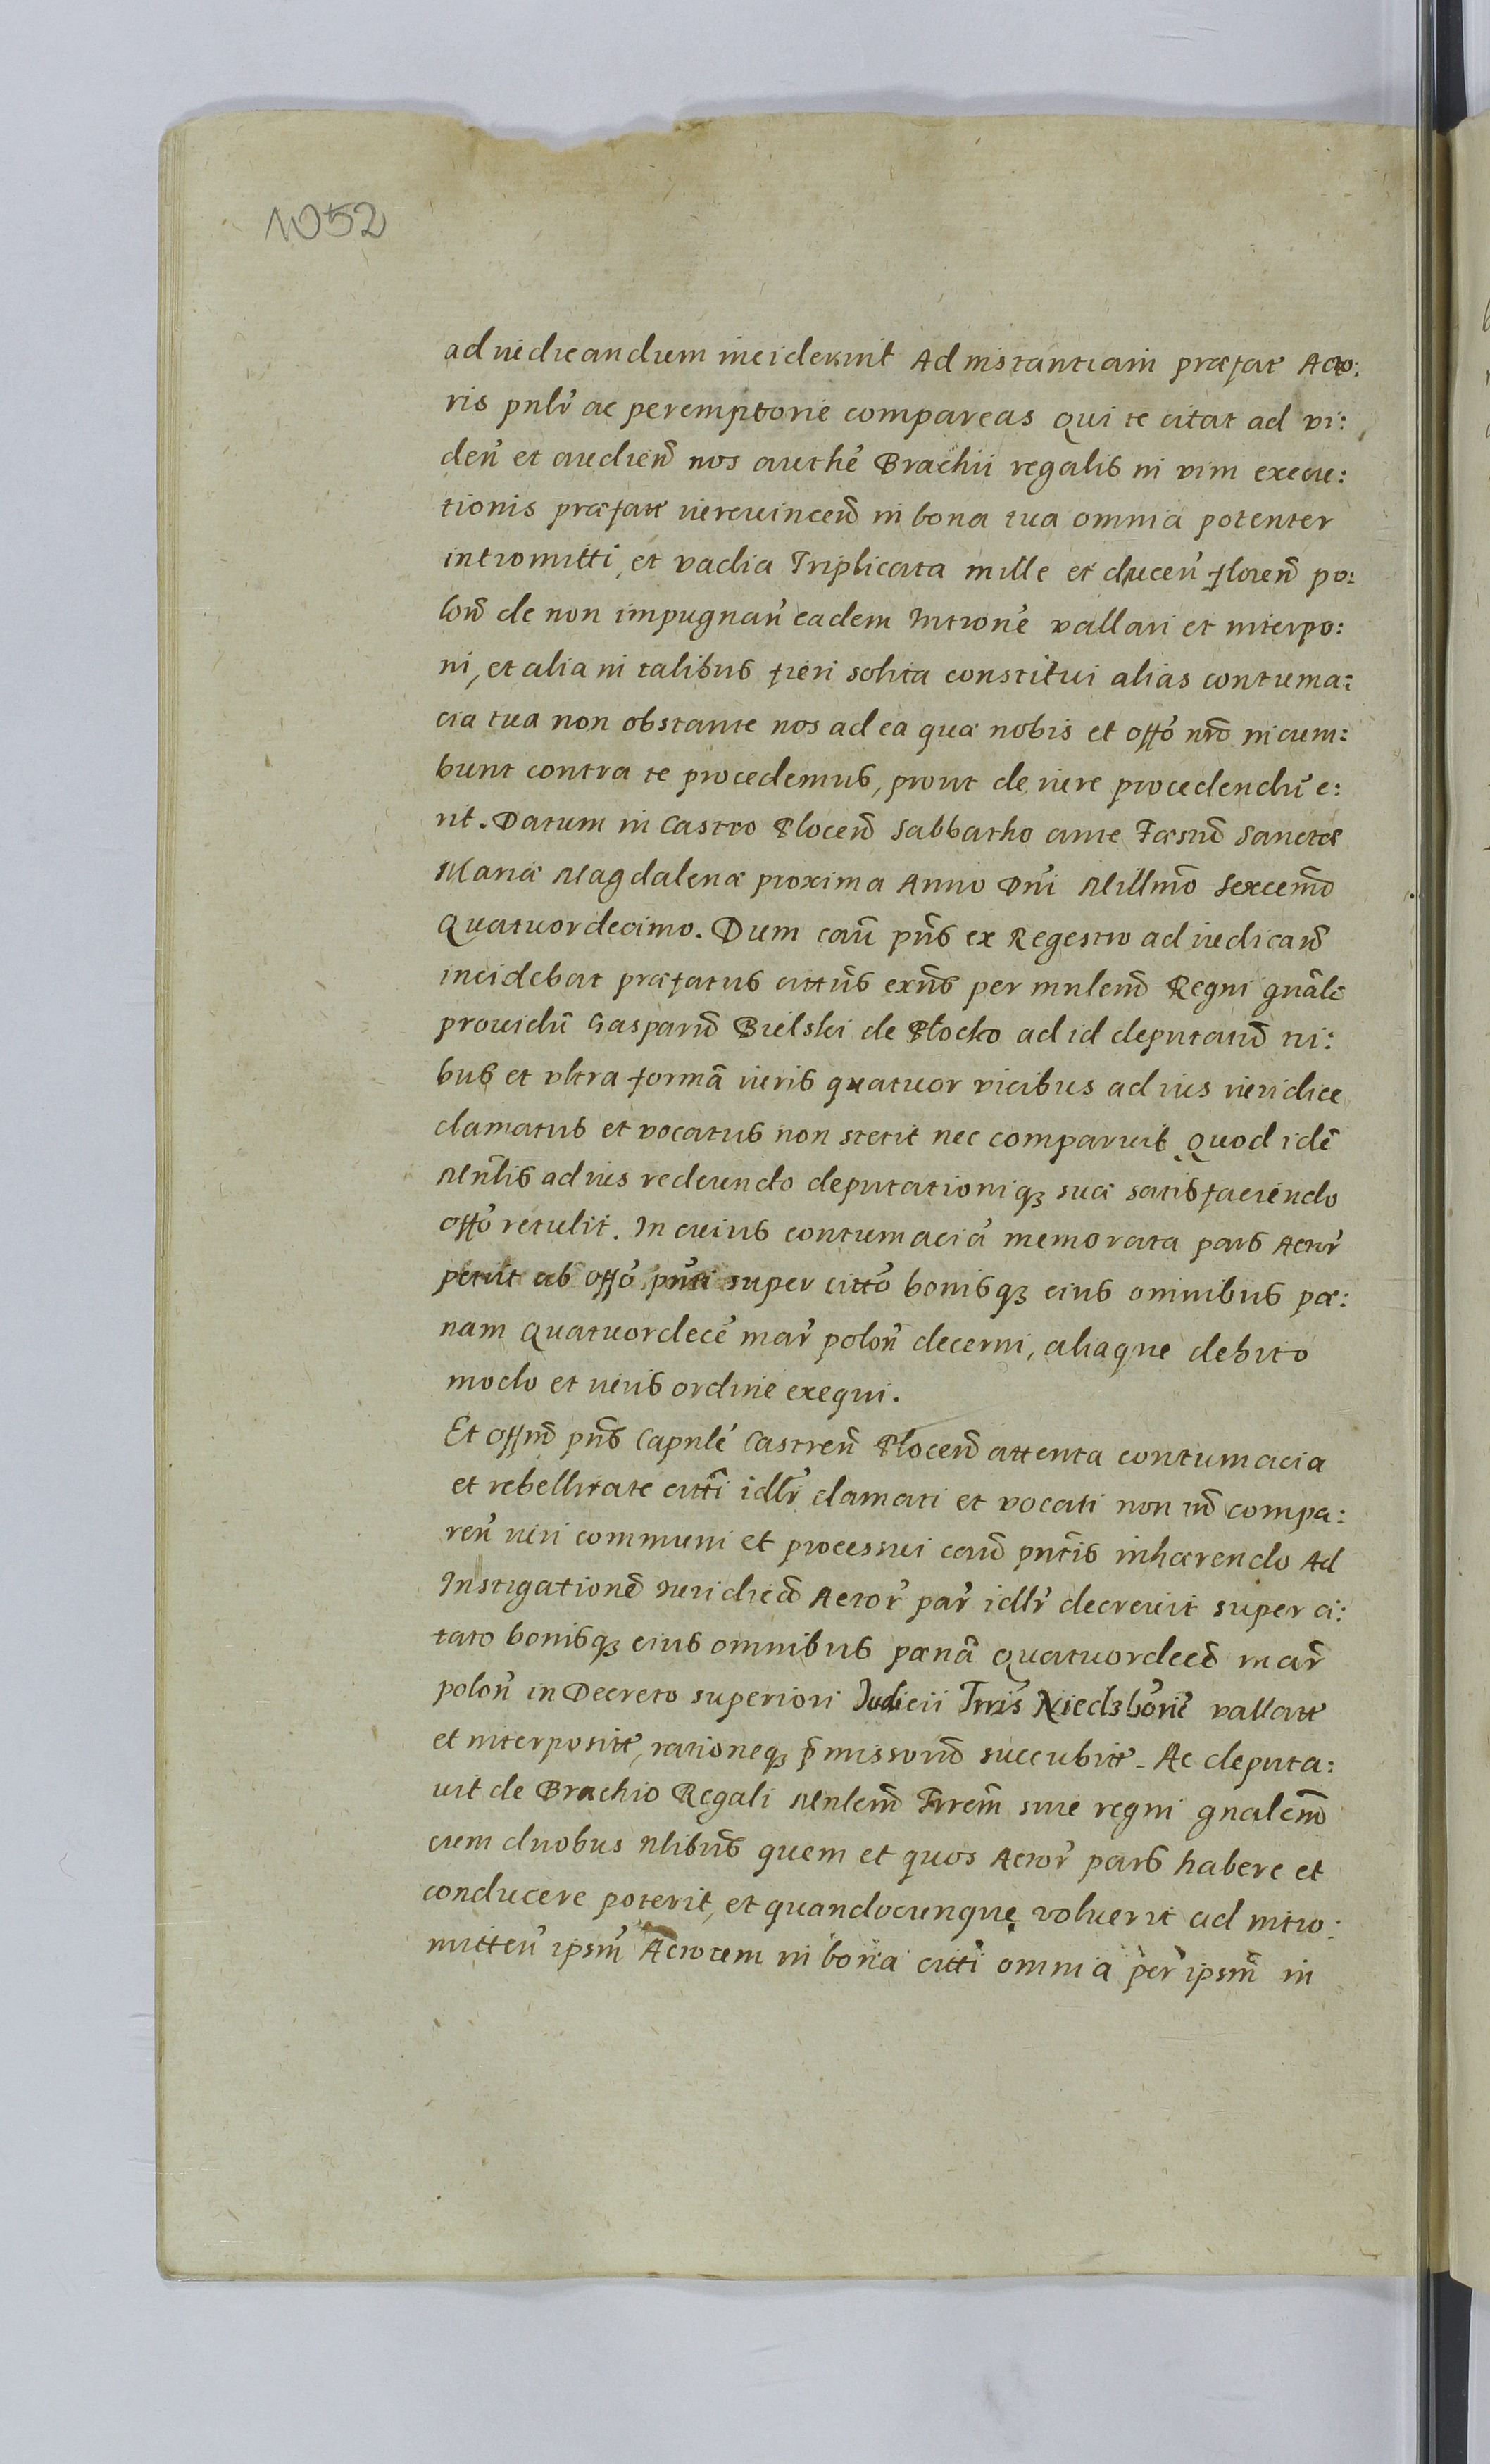 1052
ad iudicandum inciderint Ad instantiam præfat Acto:
ris pnlr ac peremptorie compareas qui te citat ad vi:
den et audien nos authe Brachii regalis in vim execu:
tionis præfatt iureuincen in bona tua omnia potenter
intromitti, et vadia Triplicata mille et ducen floren po:
lon de non impugnan eadem Introne vallari et interpo:
ni, et alia in talibus fieri solita constitui alias contuma:
cia tua non obstante nos ad ea quæ nobis et offo nro incum:
bunt contra te procedemus, prout de iure procedendu e:
rit. Datum in Castro Plocen Sabbatho ante Fæstu Sanctæ
Mariæ Magdalenæ proxima Anno Dni Millmo Sexcemo
Quatuordecimo. Dum cau pns ex Regestro ad iudican
incidebat præfatus cittus exns per mnlem Regni gnale
prouidu Gasparu Bielski de Plocko ad id deputatu tri:
bus et vltra forma iuris quatuor vicibus ad ius iuridice
clamatus et vocatus non stetit nec comparuit. Quod ide
Mnlis ad ius redeundo deputationiq3 suæ satisfaciendo
offo retulit. In cuius contumacia memorata pars Actor
petiit ab offo pnti super citto bonisq3 eius omnibus pæ:
nam quatuordece mar polon decerni, aliaque debito
modo et iuris ordine exequi.
Et offm pns Capnle Castren Plocen attenta contumacia
et rebellitate citti idlr clamati et vocati non tn compa:
ren iuri communi et processui cau pntis inhærendo Ad
Instigatione iuridica Actor par idlr decreuit super ci:
tato bonisq3 eius omnibus pæna quatuordece mar
polon in Decreto superiori Judicii Trris Niedzborie vallatt
et interpositt, rationeq3 pmissoru succubitt. Ac deputa:
uit de Brachio Regali Mnlem Trrem siue regni gnalem
cum duobus Nlibus quem et quos Actor pars habere et
conducere poterit, et quandocunque voluerit ad intro:
mitten ipsm Actorem in bona citti omnia per ipsm in